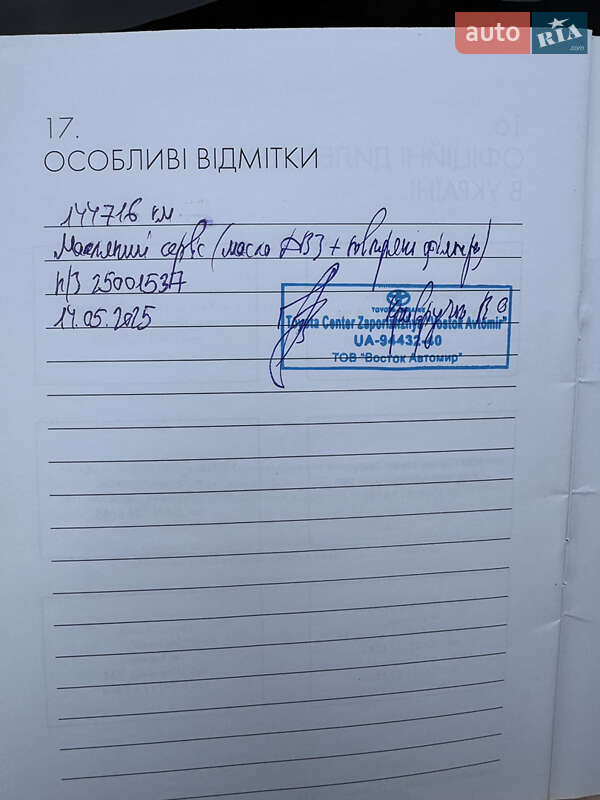 auto RIA .com
17.
ОСОБЛИВІ ВІДМІТКИ
144716 км
сервіс (масло ДВЗ + повітряні фільтри)
н/з 25001537
14.05.2025
TOYOTA
Toyota Center Zaporizhzhya "Vostok Avtomir"
UA-94432-40
ТОВ "Восток Автомир"